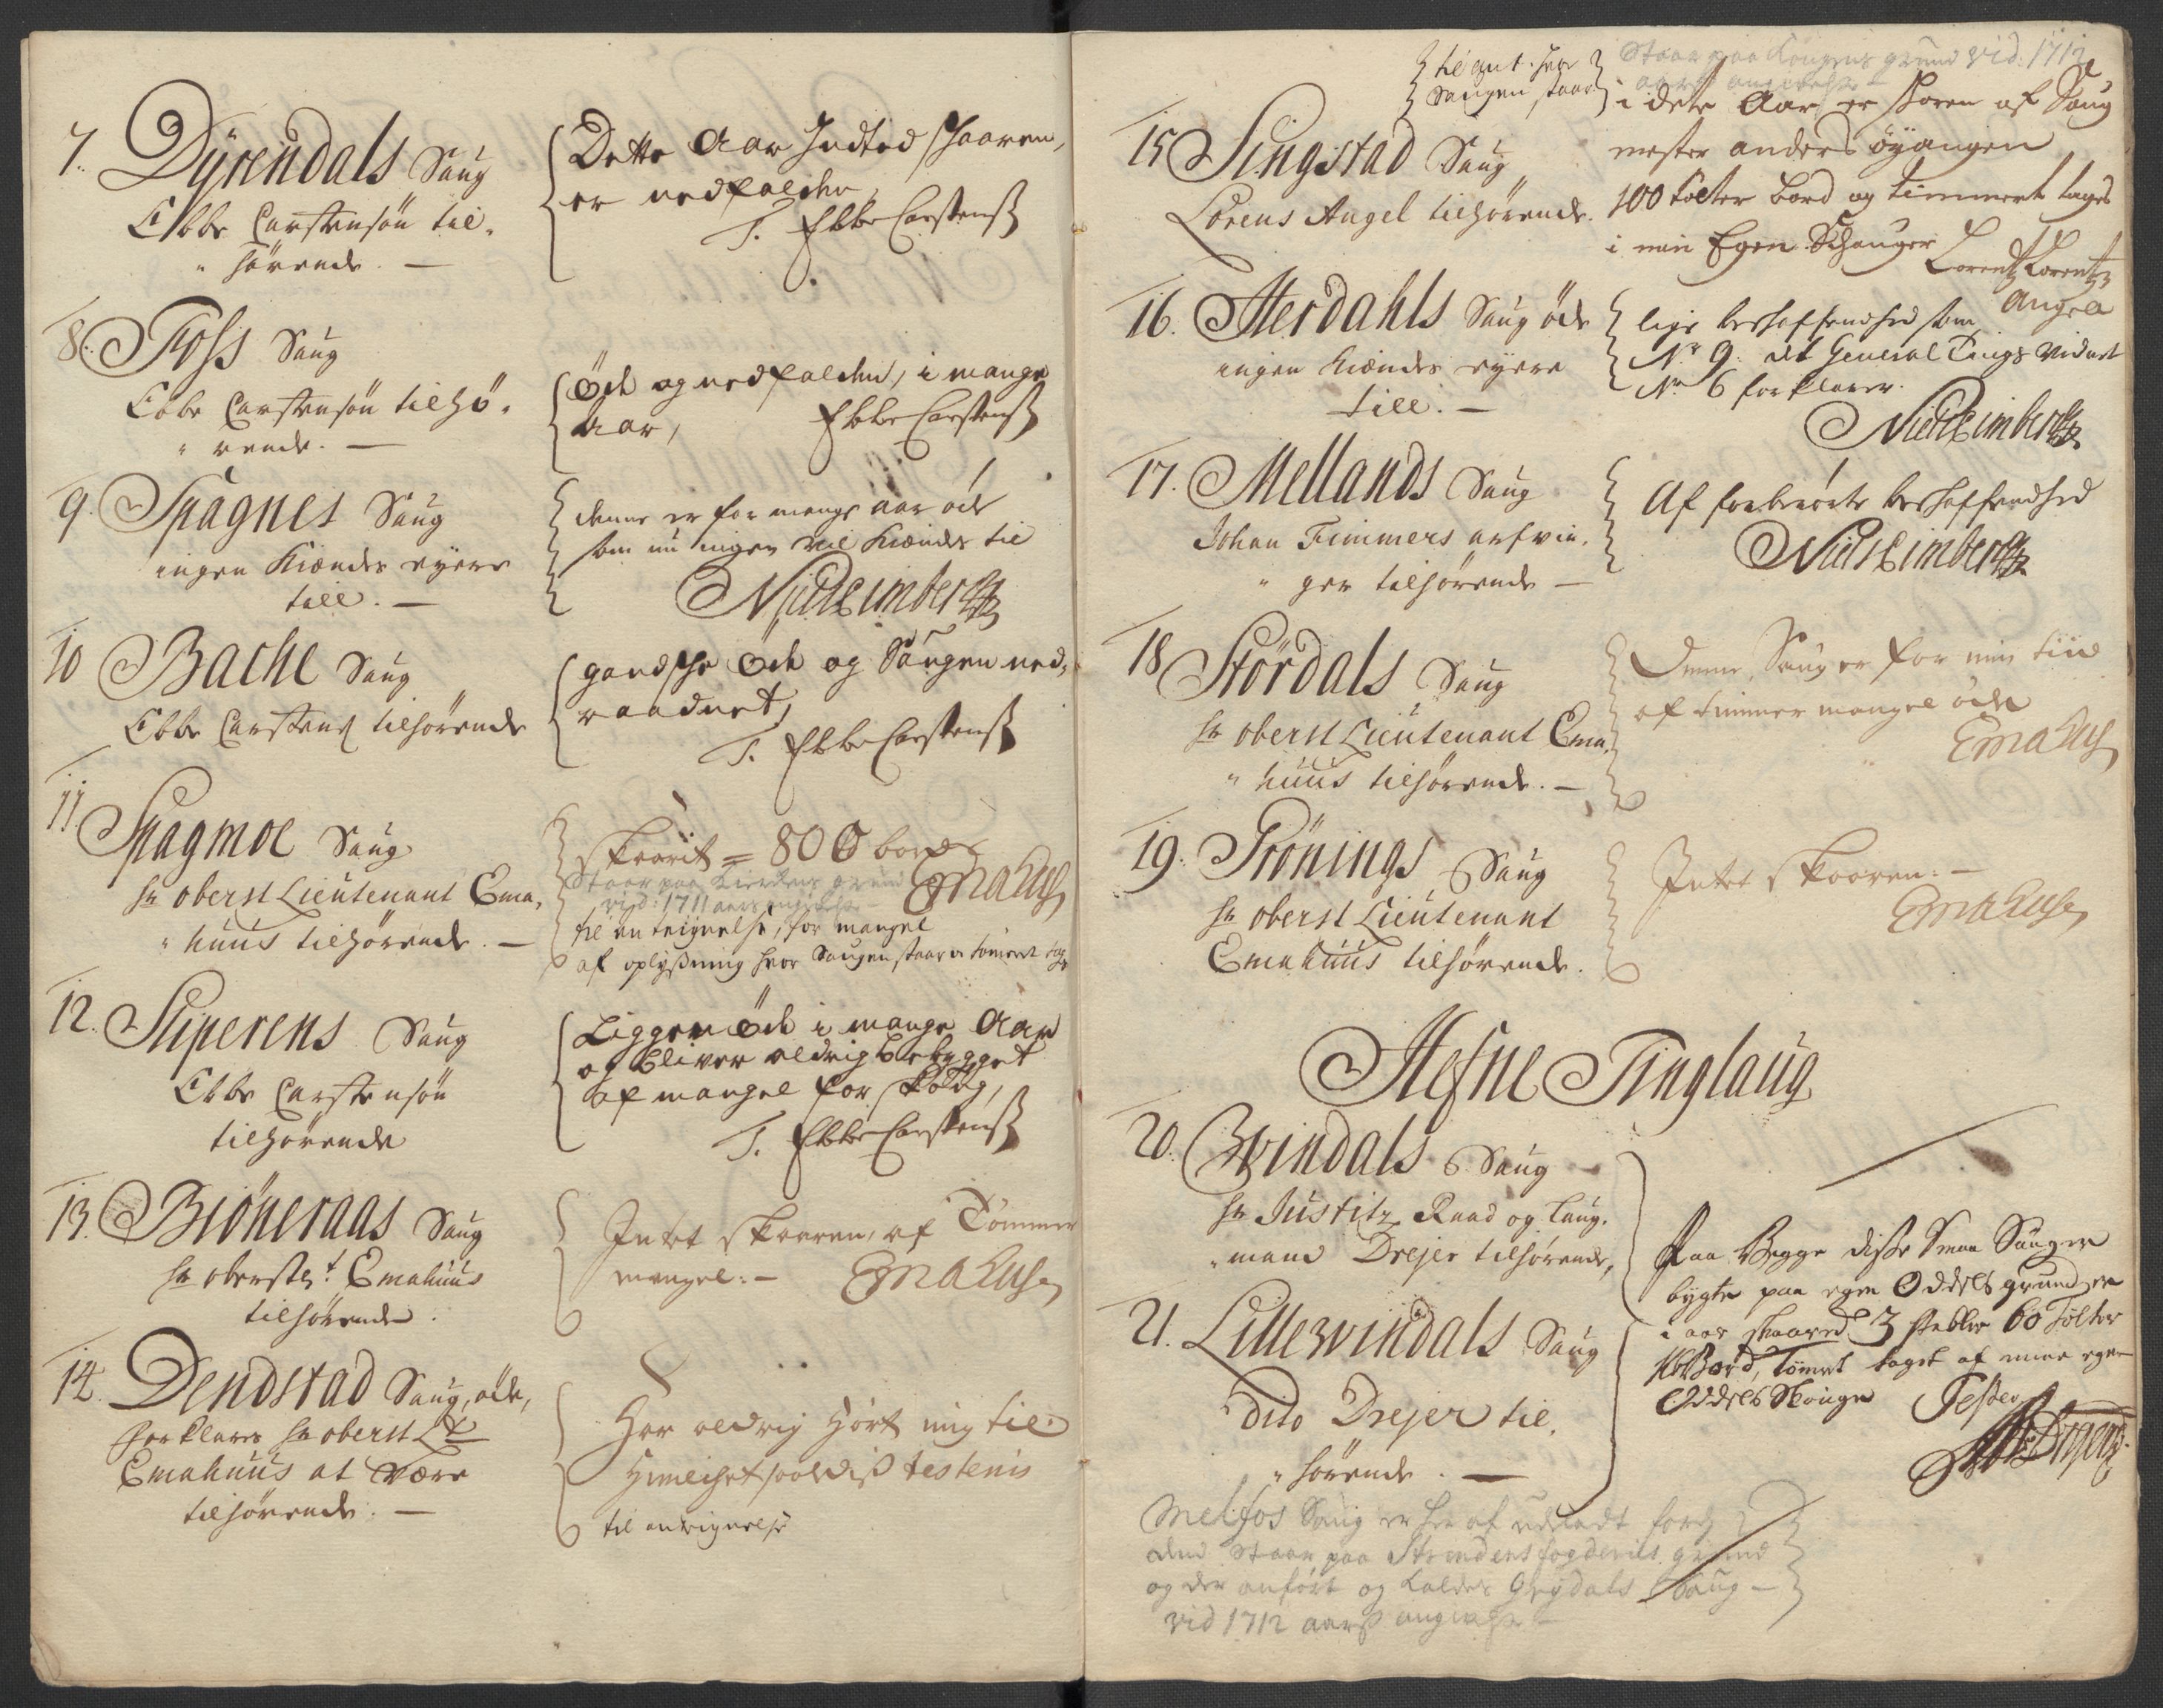 7. Dÿrendals Saug
Ebbe Carstensøn til-
hørende. —
Dette Aar Indted skaaren,
er nedfalden,
T. Ebbe Carstensß
8. Foss Saug
Ebbe Carstensøn tilhø-
rende. —
Öde og nedfalden, i mange
Aar,
Ebbe Carstensß
9. Spagnes Saug
ingen kiendes eyere
till. —
denne er for mange aar öde
som nu ingen vil kiendes til
10 Bache Saug
Ebbe Carstens tilhørende
gandske öde og Saugen ned-
raadnet,
T. Ebbe Carstensß
11. Spagmoe Saug
hr oberst Lieutenant Ema-
huus tilhørende. —
skaarit = 800 bord
Emahus
Staar paa Kierkens grund
vid: 1711 aars angivelse
til anteignelse, for mangel
af oplysning hvor Saugen staar
12. Stiperens Saug
Ebbe Carstensøn
tilhørende
Ligger öde i mange Aar
og bliver aldrig bebygget
af mangel for skoug,
T. Ebbe Carstensß
13. Biöneraas Saug
hr oberstlt. Emahuus
tilhørende.
Intet skaaren, af Tömmer
mangel: —
Emahus
14. Dendstad Saug, öde,
forklares hr oberst Lt
Emahuus at være
tilhørende. —
Har aldrig hört mig til
til anteignelse
til ant. hvor
Saugen staar
Staar paa Kongens grund vid: 1712
aars angivelse
15 Singstad Saug
Lorens Angel tilhørende.
i dete Aar er skoren af Saug
mester anders öyangen
100 tolter bord og timmeret tages
i min Egen Schauger
Lorentz Lorentz
Angell
16. Herdahls Saug öde
ingen kiendes eyere
till. —
lige beskaffendhed som
No 9. det General Tings vidnet
No 6 forklarer.
17. Mellands Saug
Johan Timmers arfvin-
ger tilhørende —
Af forberörte beskaffendhed
18 Stördals Saug
hr oberst Lieutenant Ema-
huus tilhørende. —
Denne Saug er for min tiid
af timmer mangel öde
Emahus
19. Frönings Saug
hr oberst Lieutenant
Emahuus tilhørende.
Intet skaaren. —
Emahus
Hefne Tinglaug
20. Windals Saug
hr Justitz Raad og Laug-
mand Drejer tilhørende,
21. Lillewindals Saug
dito Drejer til-
hørende. —
Paa Begge disse smaa Sauger
bygte paa egen Oddels grund, er
i aar skaared 3 stabler 60 Tolter
Bord, tömret taget af mine egne
Oddels Skouge
Testerer
Melfos Saug er her af udeladt fordj
den staar paa Strindens fogderies grund
og der anført og kaldes Grydals Saug —
vid 1712 aars angivelse —